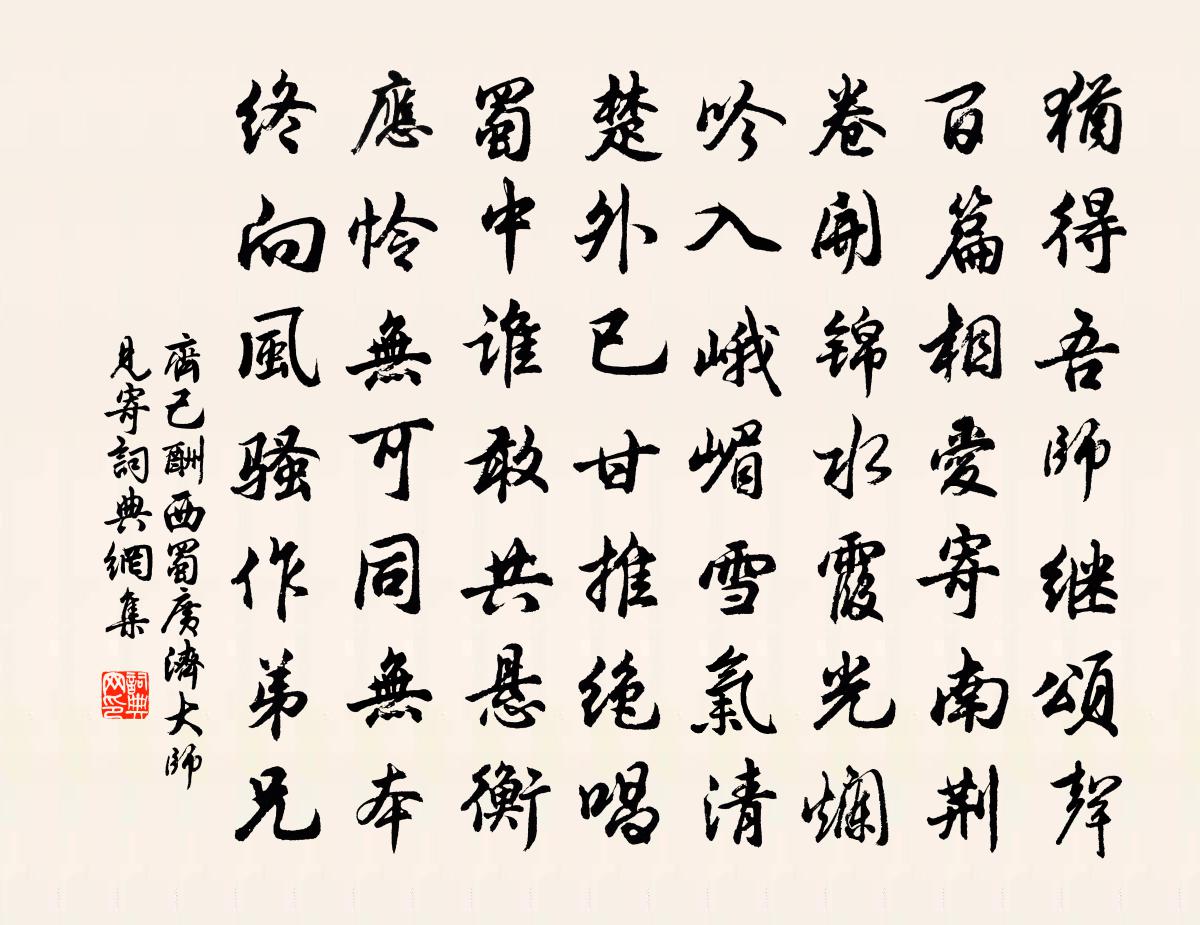 猶得吾師继頌聲
百篇相愛寄南荆
卷開锦水霞光爛
吟入峨嵋雪氣清
楚外已甘推绝唱
蜀中谁敢共悬衡
應怜無可同無本
终向風骚作弟兄
齊己酬西蜀廣濟大師
見寄詞典網集
詞典
网印